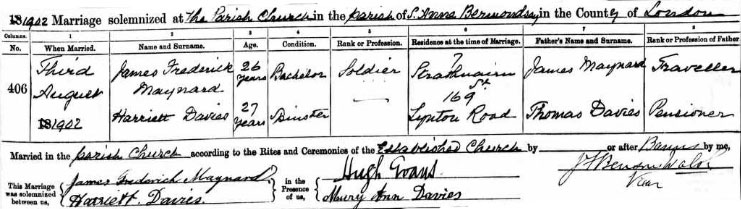 1902 Marriage solemnized at The Parish Church in the parish of St Anne Bermondsey in the County of London
Columns. 1 2 3 4 5 6 7 8
No. When Married. Name and Surname. Age. Condition. Rank or Profession. Residence at the time of Marriage. Father's Name and Surname. Rank or Profession of Father
406 Third August 1902 James Frederick Maynard 26 years Bachelor Soldier 7 Strathnairn St James Maynard Traveller
Harriett Davies 27 years Spinster — 169 Lynton Road Thomas Davies Pensioner
Married in the Parish Church according to the Rites and Ceremonies of the Established Church by or after Banns by me,
This Marriage was solemnized between us, James Frederick Maynard Harriett Davies in the Presence of us, Hugh Evans Mary Ann Davies
Vicar